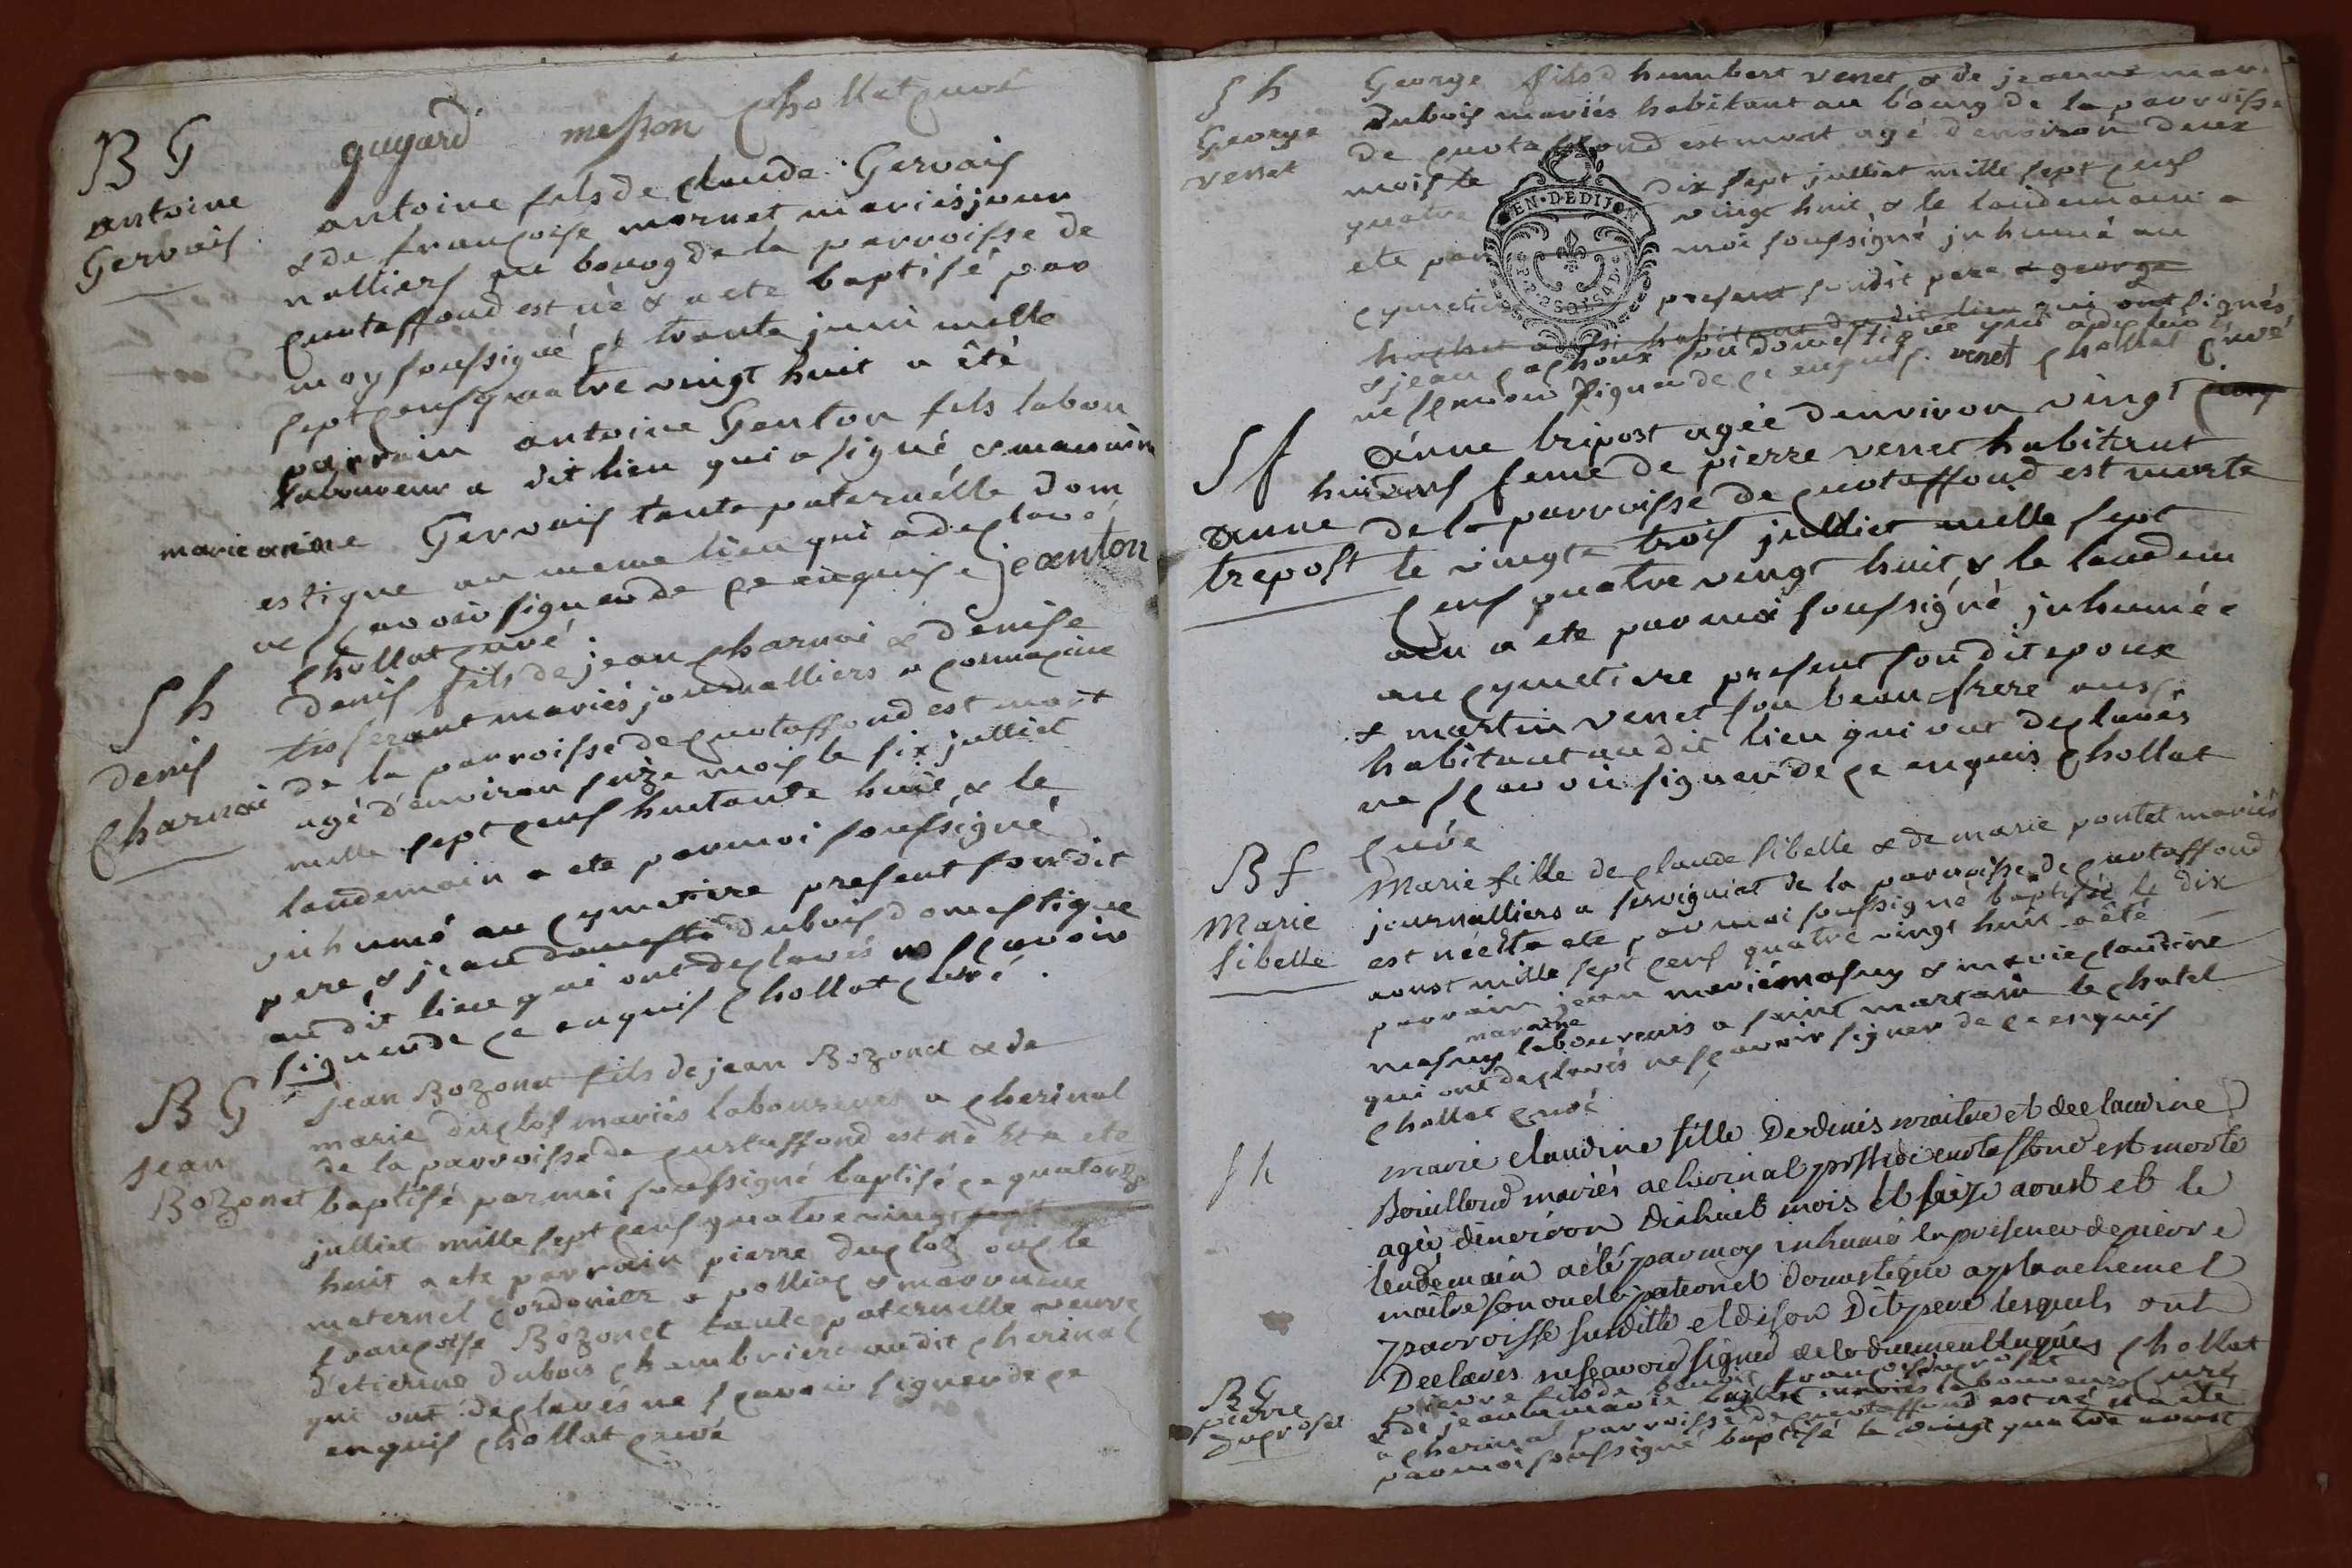 guyard messon Chollat curé
B G
antoine
Gervais
antoine fils de claude Gervais
& de françoise mornet mariés jour
nalliers au bourg de la parroisse de
curtaffond est né & a ete baptisé par
moy soussigné le trante juin mille
sept cens quatre vingt huit a êté
parrain antoine Genton fils labou
laboureur a dit lieu qui a signé & maraine
marie anne Gervais tante paternelle dom
estique au meme lieu qui a declaré
ne scavoir signer de ce enquise jeanton
chollat curé
S h
denis
Charnai
denis fils de jean charnai & denise
mariés journalliers a cormacine
de la parroisse de cuotaffond est mort
agé d'environ seize mois le six julliet
mille sept cens huitante huit & le
landemain a ete par moi soussigné
inhumé au cymetiere present son dit
pere & jean domesti dubois domestique
au dit lieu qui ont declarés ne scavoir
signer de ce enquis chollat curé
B G
jean
Bozonet
jean Bozonet fils de jean Bozonet & de
marie duclos mariés laboureurs a cherinal
de la parroisse de curtaffond est né et a ete
baptisé par moi soussigné baptisé ce quatorze
julliet mille sept cens quatre vingt
huit a ete parrain pierre duclos oncle
maternel cordonier a polliac & marraine
françoise Bozonet tante paternelle veuve
d'etienne dubois chambriere au dit cherinal
qui ont declarés ne scavoir signer de ce
enquis chollat curé
S h
George
venet
George fils d humbert venet & de jeanne mar
dubois mariés habitant au bourg de la parroisse
de cuotaffond est mort agé d'environ deux
mois le dix sept julliet mille sept cens
quatre vingt huit & le landemain a
ete par moi soussigné inhumé au
cymetiere present sondit pere & george
huchet aussi habitant du dit lieu qui ont signés
& jean cachoux son domestique qui a declaré
ne scavoir signer de ce enquis. venet chollat curé
EN · DE DIJON
S f
anne
trepost
anne tripost agée d'environ vingt cinq
huit ans feme de pierre venet habitant
de la parroisse de cuotaffond est morte
le vingte trois julliet mille sept
cens quatre vingt huit & le landem
ain a ete par moi soussigné inhumée
au cymetiere present son dit epoux
& martin venet son beau frere aussi
habitant au dit lieu qui ont declarés
ne scavoir signer de ce enquis chollat
curée
B f
Marie
sibelle
Marie fille de claude sibelle & de marie pontet mariés
journalliers a servigniat de la parroisse de cuotaffond
est née & a ete par moi soussigné baptisée le dix
aoust mille sept cens quatre vingt huit a êté
parrain jean marie masuy & marie claudine
maraine
masuy laboureurs a saint martain le chatel
qui ont declarés ne scavoir signer de ce enquis
chollat curé
S h
marie claudine fille de denis maitre et de claudine
Bouilloud mariés a cherinal de curtaffond est morte
agée d'environ dixhuit mois le seize aoust et le
lendemain a été par moy inhumé en presence de pierre
maitre son oncle paternel domestique a planchemel
parroisse susditte et de son dit pere lesquels ont
Declarés ne scavoir signer de ce duement enquis chollat
curé
B G
pierre
ducroset
pierre fils de benoit françois ducroset
& de jeanne marie mariés laboureurs
a cherinal parroisse de cuotaffond est né & a été
par moi soussigné baptisé le vingt quatre aoust